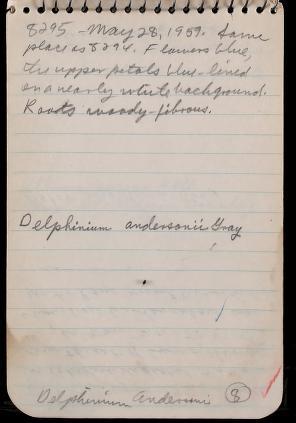 8295 - May 28, 1959. Same
place as 8294. Flowers blue,
the upper petals blue-lined
on a nearly white background.
Roots woody-fibrous.
Delphinium andersonii Gray
Delphinium Andersoni 8